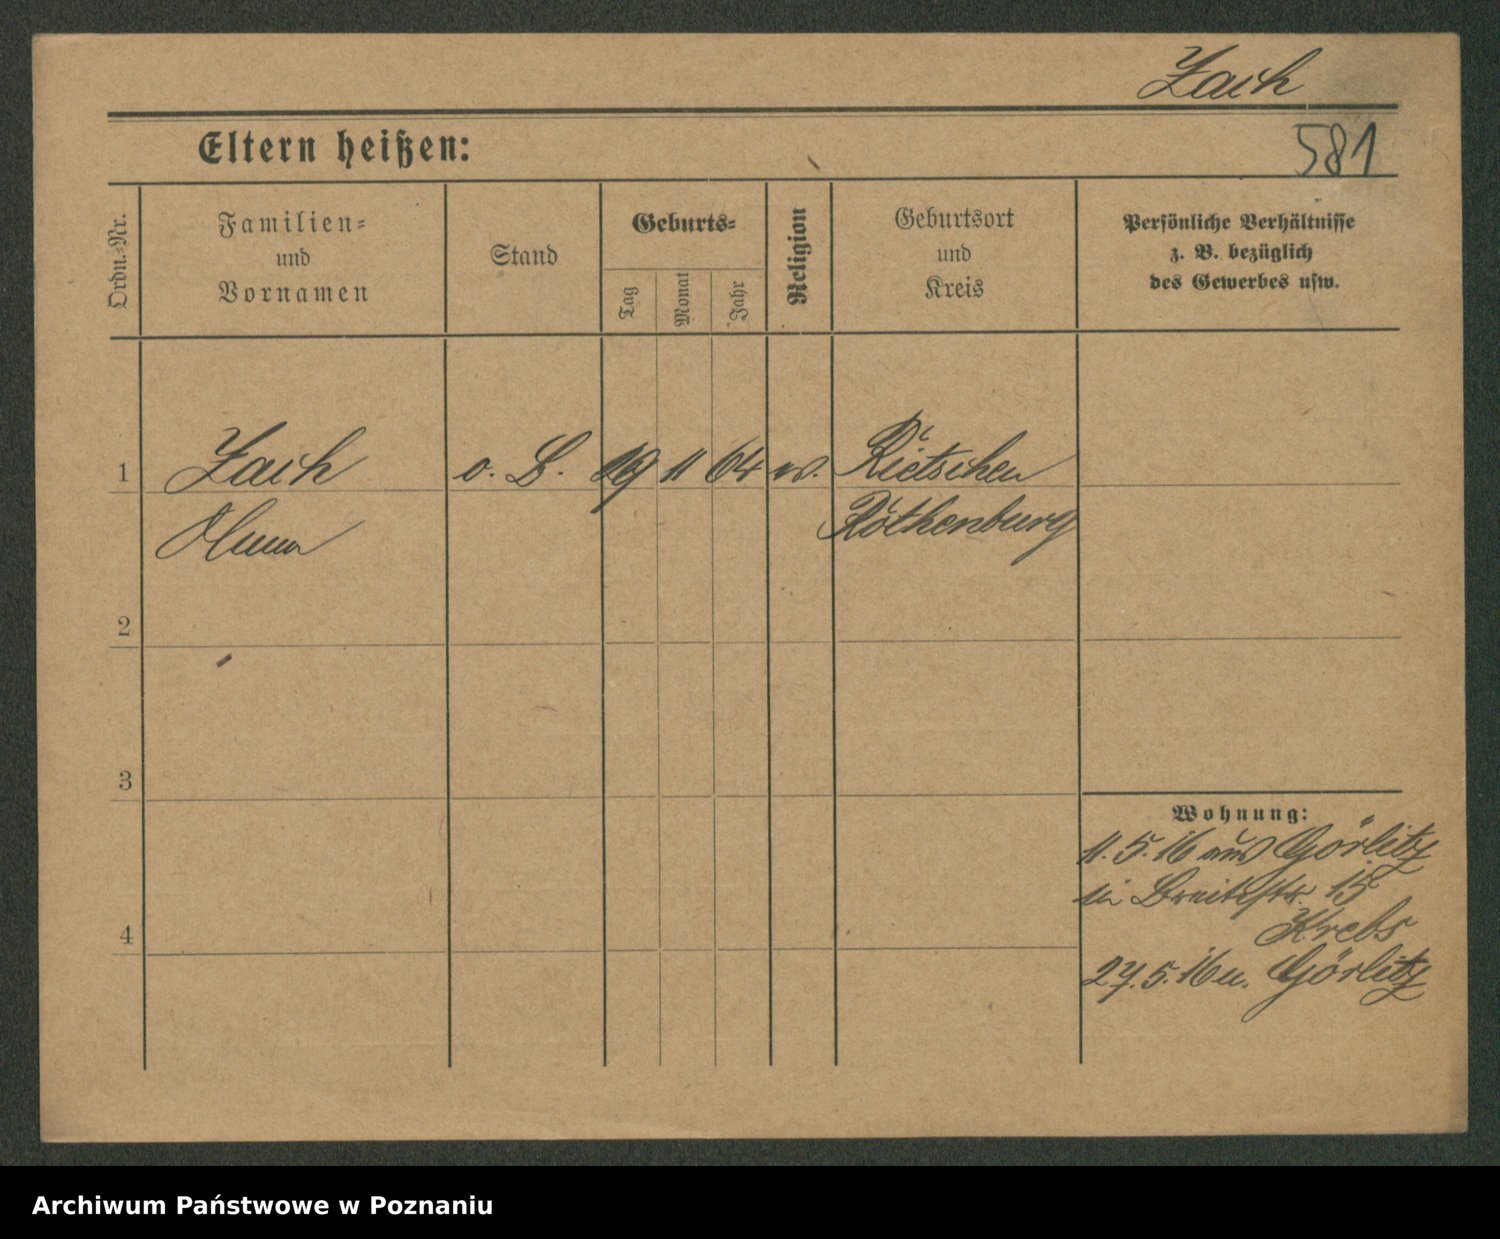 Zach
Eltern heißen:
581
Ordn.-Nr.
Familien-
und
Vornamen
Stand
Geburts-
Tag
Monat
Jahr
Religion
Geburtsort
und
Kreis
Persönliche Verhältnisse
z. B. bezüglich
des Gewerbes usw.
1 Zach o. B. 19 11 64 Rietschen
Rothenburg
2
3
4
Wohnung:
11.5.16 aus Görlitz
in Breitestr. 15
Krebs
27.5.16 n. Görlitz
Archiwum Państwowe w Poznaniu